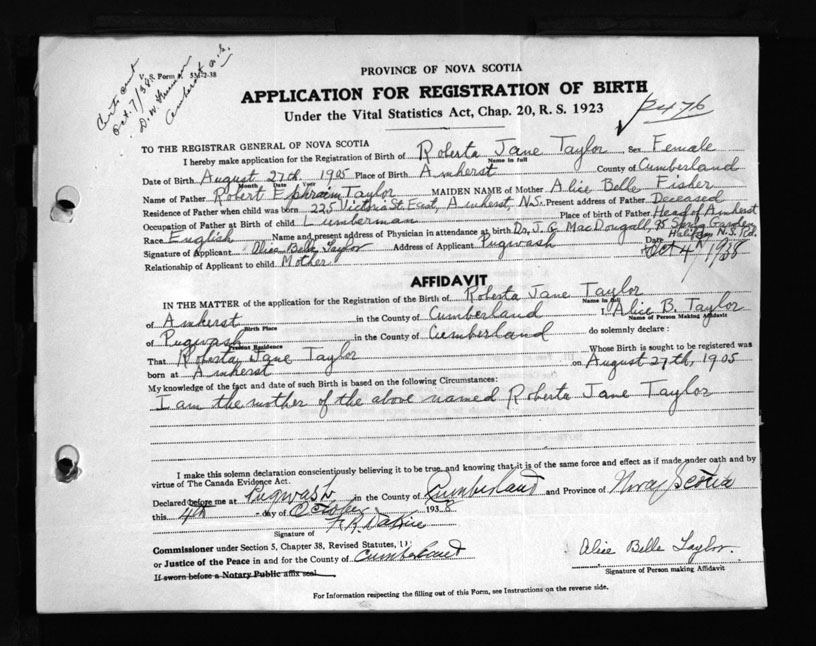 Certs sent
Oct. 7/38
D. W.
Amherst N.S.
V.S. Form 2-38
PROVINCE OF NOVA SCOTIA
APPLICATION FOR REGISTRATION OF BIRTH
Under the Vital Statistics Act, Chap. 20, R. S. 1923
2476
TO THE REGISTRAR GENERAL OF NOVA SCOTIA
I hereby make application for the Registration of Birth of Roberta Jane Taylor Sex Female
Name in full
Date of Birth August 27th. 1905 Place of Birth Amherst County of Cumberland
Month Date Year
Name of Father Robert Ephraim Taylor MAIDEN NAME of Mother Alice Belle Fisher
Residence of Father when child was born 225 Victoria St. East, Amherst, N.S. Present address of Father Deceased
Occupation of Father at Birth of child Lumberman Place of birth of Father Head of Amherst
Race English Name and present address of Physician in attendance at birth Dr. J. G. MacDougall, 95 Spring Garden Rd. Halifax N.S.
Signature of Applicant Alice Belle Taylor Address of Applicant Pugwash Date Oct 4th 1938
Relationship of Applicant to child Mother
AFFIDAVIT
IN THE MATTER of the application for the Registration of the Birth of Roberta Jane Taylor
Name in full
of Amherst in the County of Cumberland I, Alice B. Taylor
Birth Place Name of Person Making Affidavit
of Pugwash in the County of Cumberland do solemnly declare :
Present Residence
That Roberta Jane Taylor Whose Birth is sought to be registered was
born at Amherst on August 27th, 1905
My knowledge of the fact and date of such Birth is based on the following Circumstances:
I am the mother of the above named Roberta Jane Taylor
I make this solemn declaration conscientiously believing it to be true, and knowing that it is of the same force and effect as if made under oath and by
virtue of The Canada Evidence Act.
Declared before me at Pugwash in the County of Cumberland and Province of Nova Scotia
this 4th day of October 1938
Signature of
Commissioner under Section 5, Chapter 38, Revised Statutes,
or Justice of the Peace in and for the County of Cumberland
If sworn before a Notary Public affix seal
Alice Belle Taylor.
Signature of Person making Affidavit
For Information respecting the filling out of this Form, see Instructions on the reverse side.